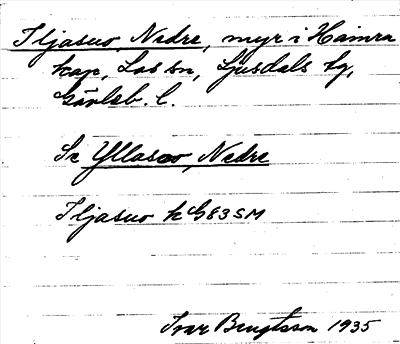 Iljasuo, Nedre, myr i Hamra
kap, Los sn, Ljusdals tg,
Gävleb. l.
Se Yllasuo, Nedre
Iljasuo k G83SM
Ivar Bengtsson 1935